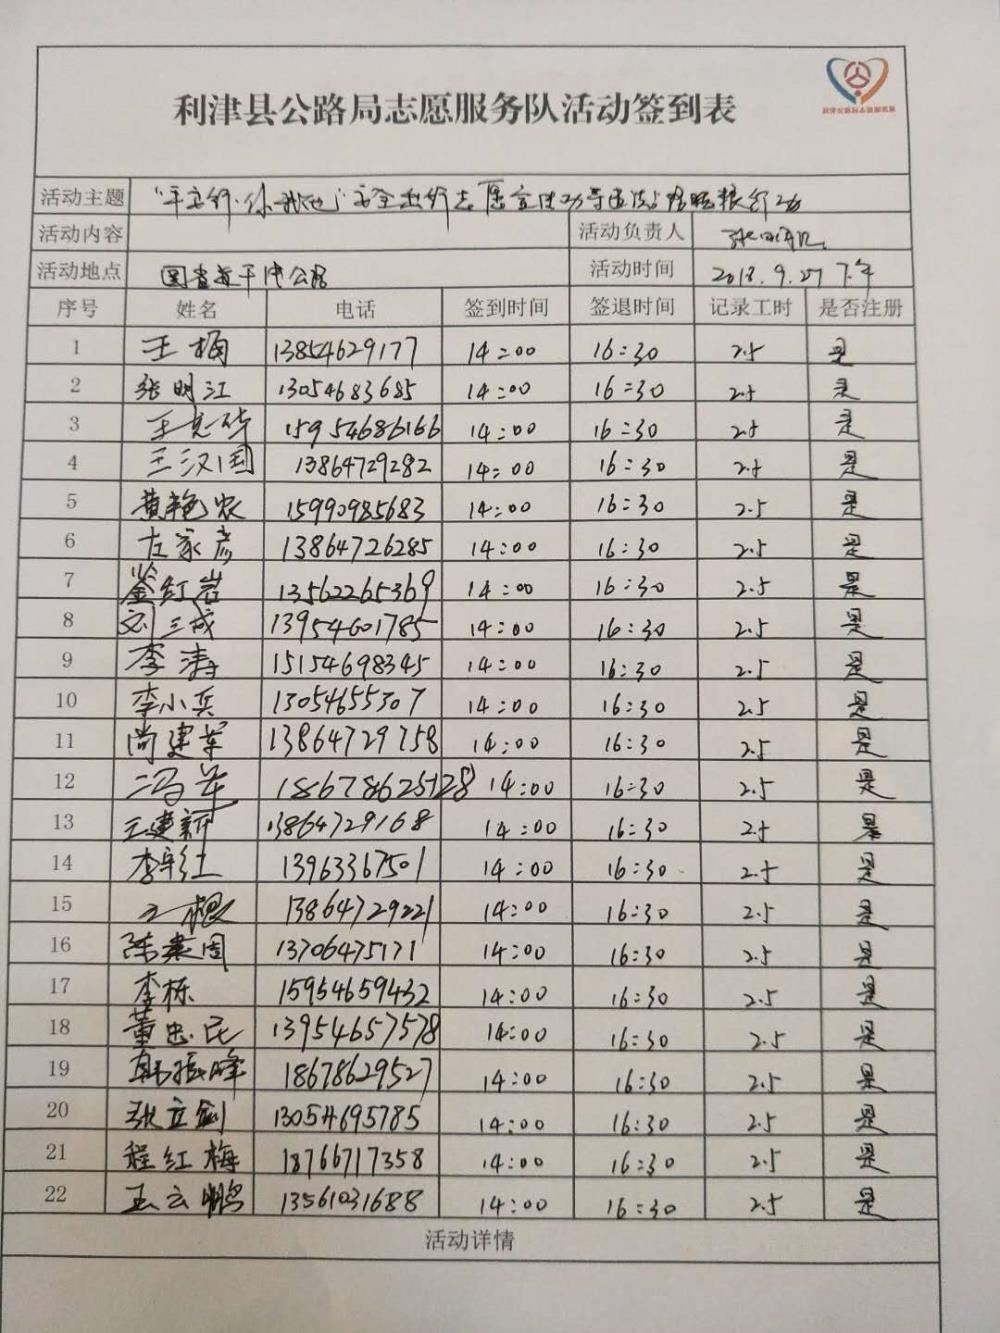 利津县公路局志愿服务队活动签到表
活动主题 "平安行·你我他"安全出行志愿宣传
活动内容 活动负责人
活动地点 国省道干线公路 活动时间 2018.9.27 下午
序号 姓名 电话 签到时间 签退时间 记录工时 是否注册
1 王楠 13854629177 14:00 16:30 2.5 是
2 张明江 13054683685 14:00 16:30 2.5 是
3 15954686166 14:00 16:30 2.5 是
4 王汉国 13864729282 14:00 16:30 2.5 是
5 黄艳农 15990985683 14:00 16:30 2.5 是
6 左家彦 13864726285 14:00 16:30 2.5 是
7 綦红岩 13562265369 14:00 16:30 2.5 是
8 刘三城 13954601785 14:00 16:30 2.5 是
9 李涛 15154698345 14:00 16:30 2.5 是
10 李小兵 13054655307 14:00 16:30 2.5 是
11 尚建军 13864729758 14:00 16:30 2.5 是
12 冯军 18678625128 14:00 16:30 2.5 是
13 王建新 13864729168 14:00 16:30 2.5 是
14 13963367501 14:00 16:30 2.5 是
15 王根 13864729221 14:00 16:30 2.5 是
16 陈秉周 13706475171 14:00 16:30 2.5 是
17 李栋 15954659432 14:00 16:30 2.5 是
18 董忠民 13954657578 14:00 16:30 2.5 是
19 韩振峰 18678629527 14:00 16:30 2.5 是
20 张立剑 13054695785 14:00 16:30 2.5 是
21 程红梅 18766717358 14:00 16:30 2.5 是
22 王云鹏 13561031688 14:00 16:30 2.5 是
活动详情